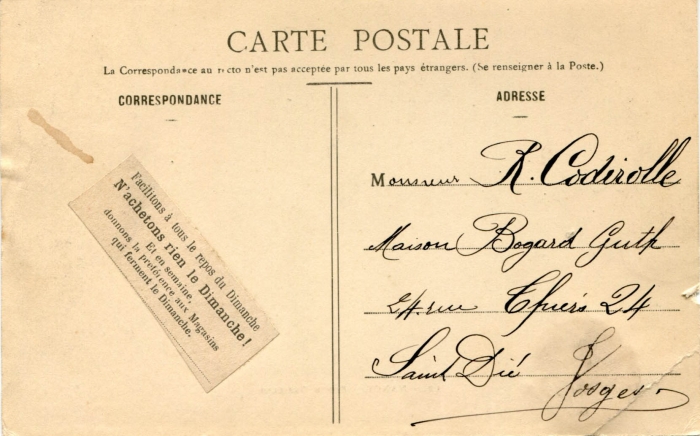 CARTE POSTALE
La Correspondance au recto n'est pas acceptée par tous les pays étrangers. (Se renseigner à la Poste.)
CORRESPONDANCE
ADRESSE
Monsieur R. Codirolle
Maison Bogard Guth
24. rue Thiers 24
Saint Dié Vosges
Facilitons à tous le repos du Dimanche
N'achetons rien le Dimanche!
Et en semaine,
donnons la préférence aux Magasins
qui ferment le Dimanche.